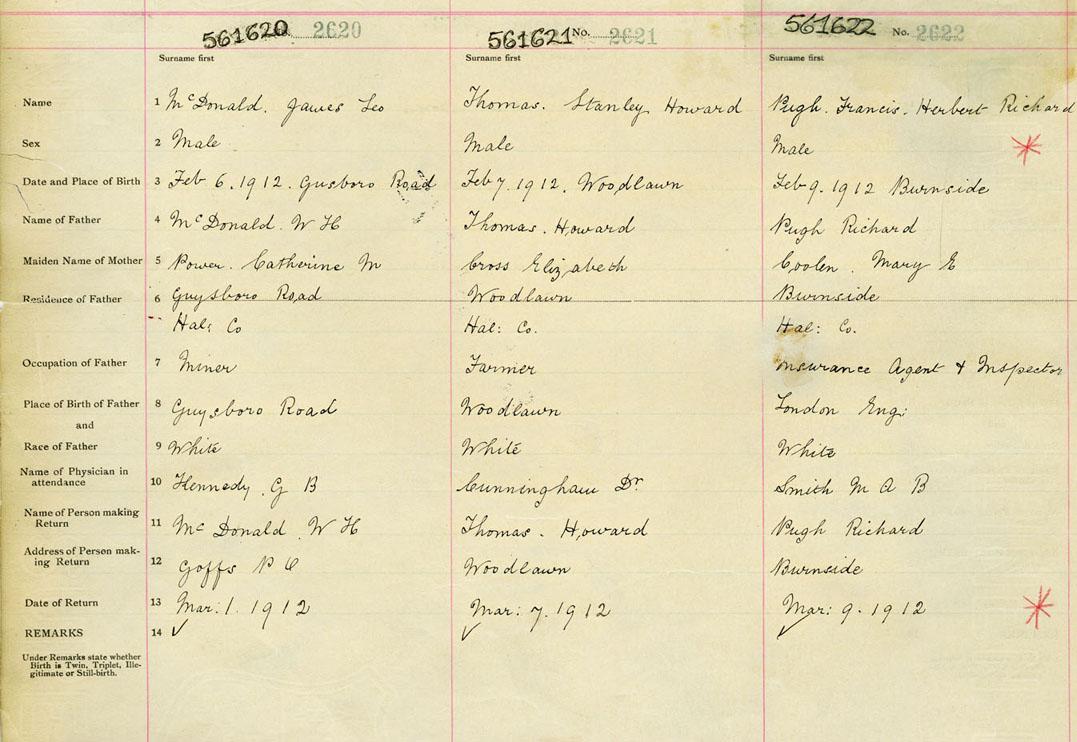 561620 2620 561621 No. 2621 561622 No. 2622
Surname first Surname first Surname first
Name 1 McDonald. James Leo Thomas. Stanley Howard Pugh. Francis. Herbert Richard
Sex 2 Male Male Male
Date and Place of Birth 3 Feb 6. 1912. Gusboro Road Feb 7. 1912. Woodlawn Feb 9. 1912 Burnside
Name of Father 4 McDonald. W H Thomas. Howard Pugh Richard
Maiden Name of Mother 5 Power. Catherine M Cross Elizabeth Coolen. Mary E
Residence of Father 6 Guysboro Road Woodlawn Burnside
Hal: Co Hal: Co. Hal: Co.
Occupation of Father 7 Miner Farmer Insurance Agent & Inspector
Place of Birth of Father 8 Guysboro Road Woodlawn London Eng:
and
Race of Father 9 White White White
Name of Physician in
attendance 10 Kennedy. G B Cunningham Dr. Smith M A B
Name of Person making
Return 11 McDonald. W H Thomas. Howard Pugh Richard
Address of Person mak-
ing Return 12 Goffs P O Woodlawn Burnside
Date of Return 13 Mar: 1. 1912 Mar: 7. 1912 Mar: 9. 1912
REMARKS 14 ✓ ✓ ✓
Under Remarks state whether
Birth is Twin, Triplet, Ille-
gitimate or Still-birth.